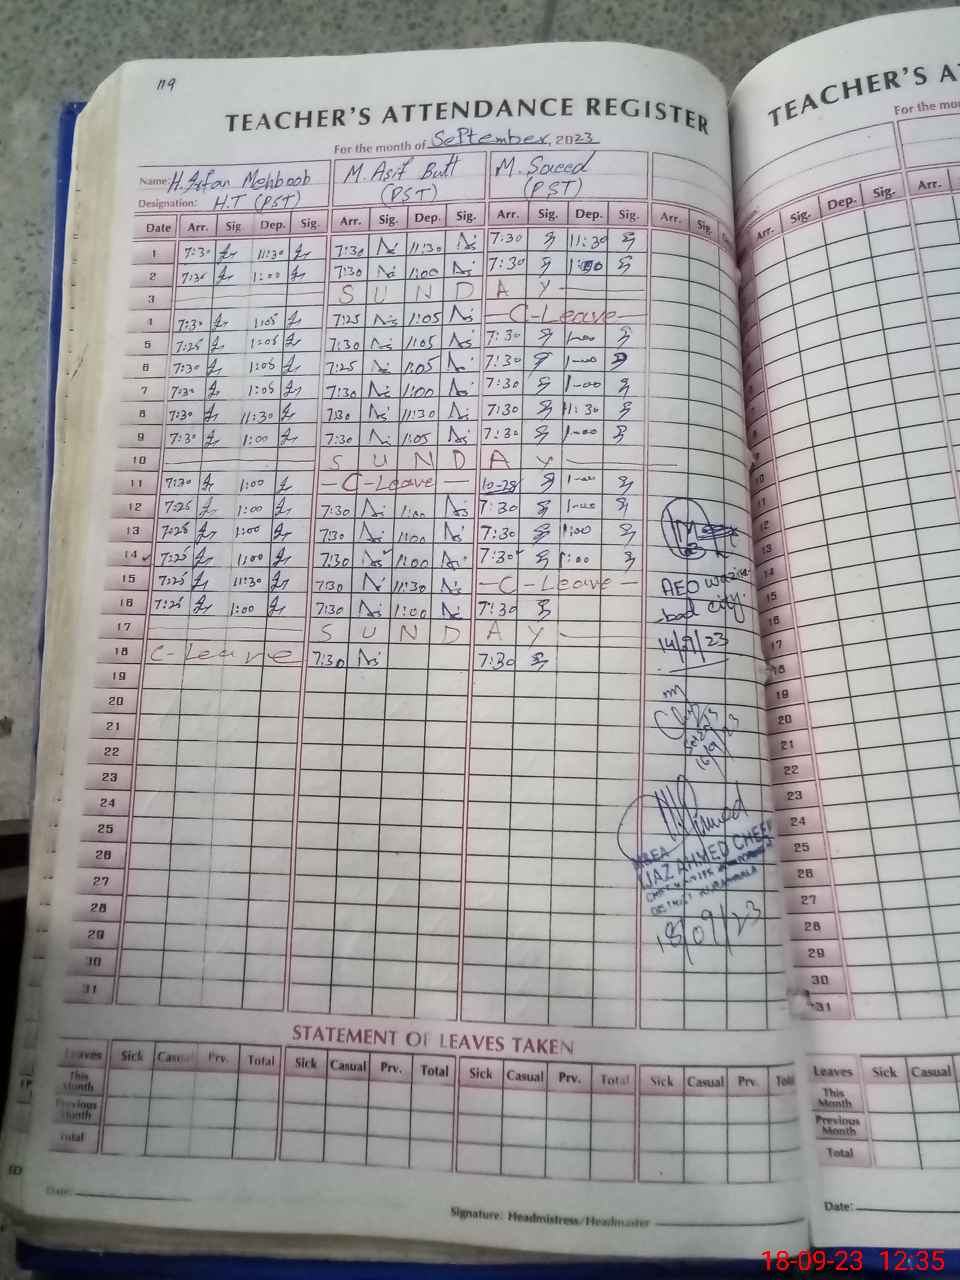 119
TEACHER'S ATTENDANCE REGISTER
For the month of September, 2023
Name: H. Irfan Mehboob M. Asif Butt M. Saeed
Designation: H.T (PST) (PST) (PST)
Date Arr. Sig. Dep. Sig. Arr. Sig. Dep. Sig. Arr. Sig. Dep. Sig. Arr. Sig.
1 7:30 11:30 7:30 11:30 7:30 11:30
2 7:30 1:00 7:30 1:00 7:30 1:00
3 SUNDAY
4 7:30 1:05 7:25 1:05 C-Leave
5 7:25 1:05 7:30 1:05 7:30 1-00
6 7:30 1:05 7:25 1:05 7:30 1-00
7 7:30 1:05 7:30 1:00 7:30 1-00
8 7:30 11:30 7:30 11:30 7:30 11:30
9 7:30 1:00 7:30 1:05 7:30 1-00
10 SUNDAY
11 7:30 1:00 C-Leave 10-28 1-00
12 7:25 1:00 7:30 1:00 7:30 1-00
13 7:25 1:00 7:30 1:00 7:30 1:00
14 7:25 1:00 7:30 1:00 7:30 1:00
15 7:25 11:30 7:30 11:30 C-Leave
16 7:25 1:00 7:30 1:00 7:30
17 SUNDAY
18 C-Leave 7:30 7:30
19
20
21
22
23
24
25
26
27
28
29
30
31
AEO
city.
14/9/23
16/9/23
IJAZ AHMED
18/09/23
STATEMENT OF LEAVES TAKEN
Leaves Sick Casual Prv. Total Sick Casual Prv. Total Sick Casual Prv. Total Sick Casual Prv. Total
This Month
Previous Month
Total
Date:
Signature: Headmistress/Headmaster
TEACHER'S
For the
Arr. Sig. Dep. Sig. Arr.
10
11
12
13
14
15
16
17
18
19
20
21
22
23
24
25
26
27
28
29
30
31
Leaves Sick Casual
This Month
Previous Month
Total
Date:
18-09-23 12:35